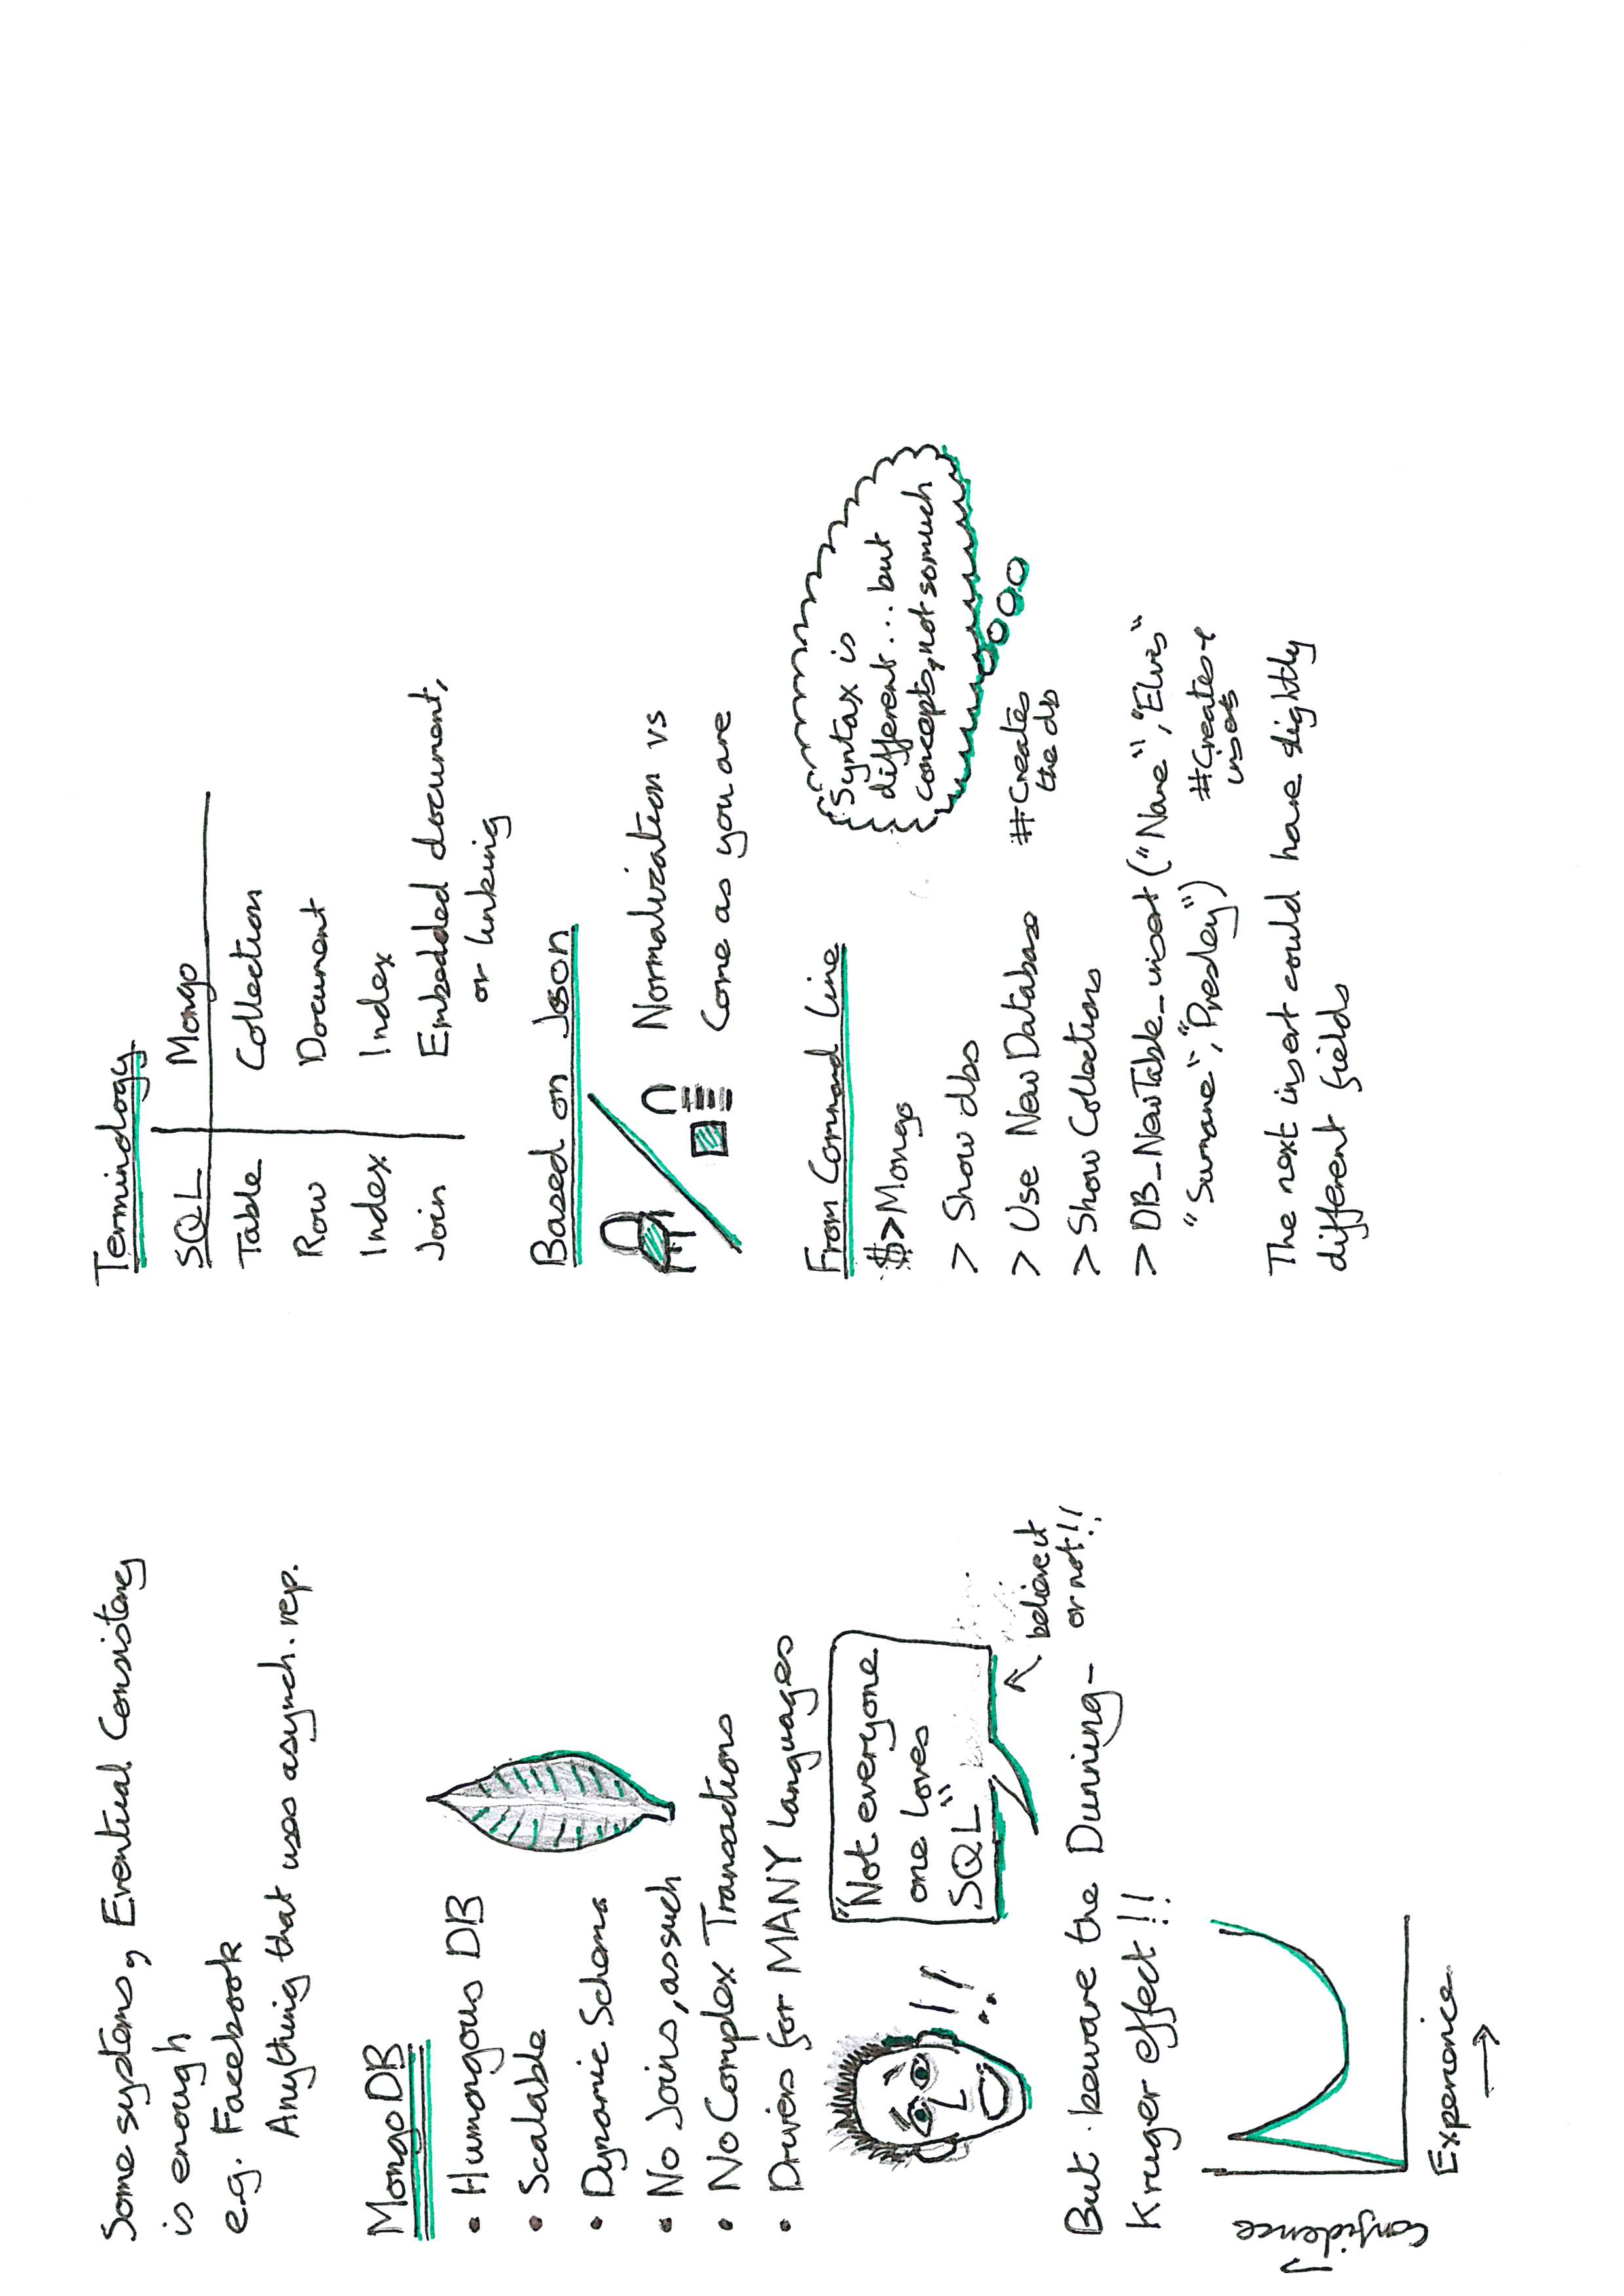 Some systems, Eventual Consistency
is enough
e.g. Facebook
Anything that uses asynch. rep.
MongoDB
• Humongous DB
• Scalable
• Dynamic Schema
• No Joins, as such
• No Complex Transactions
• Drivers for MANY languages
!!
"Not everyone
one loves
SQL"
believe it
or not!!
But beware the Dunning-
Kruger effect!!
Confidence
Experience
Terminology
SQL Mongo
Table Collection
Row Document
Index Index
Join Embedded document,
or linking
Based on Json
Normalization vs
Come as you are
From Command Line
$>Mongo
> Show dbs
> Use New Database #Creates
the db
> Show Collections
> DB_NewTable_insert ("Name", "Elvis"
"Surname", "Presley") #Creates +
inserts
Syntax is
different... but
concepts, not so much
The next insert could have slightly
different fields